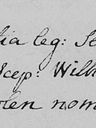 lia leg: Se
Scep: Wilh
olen nom